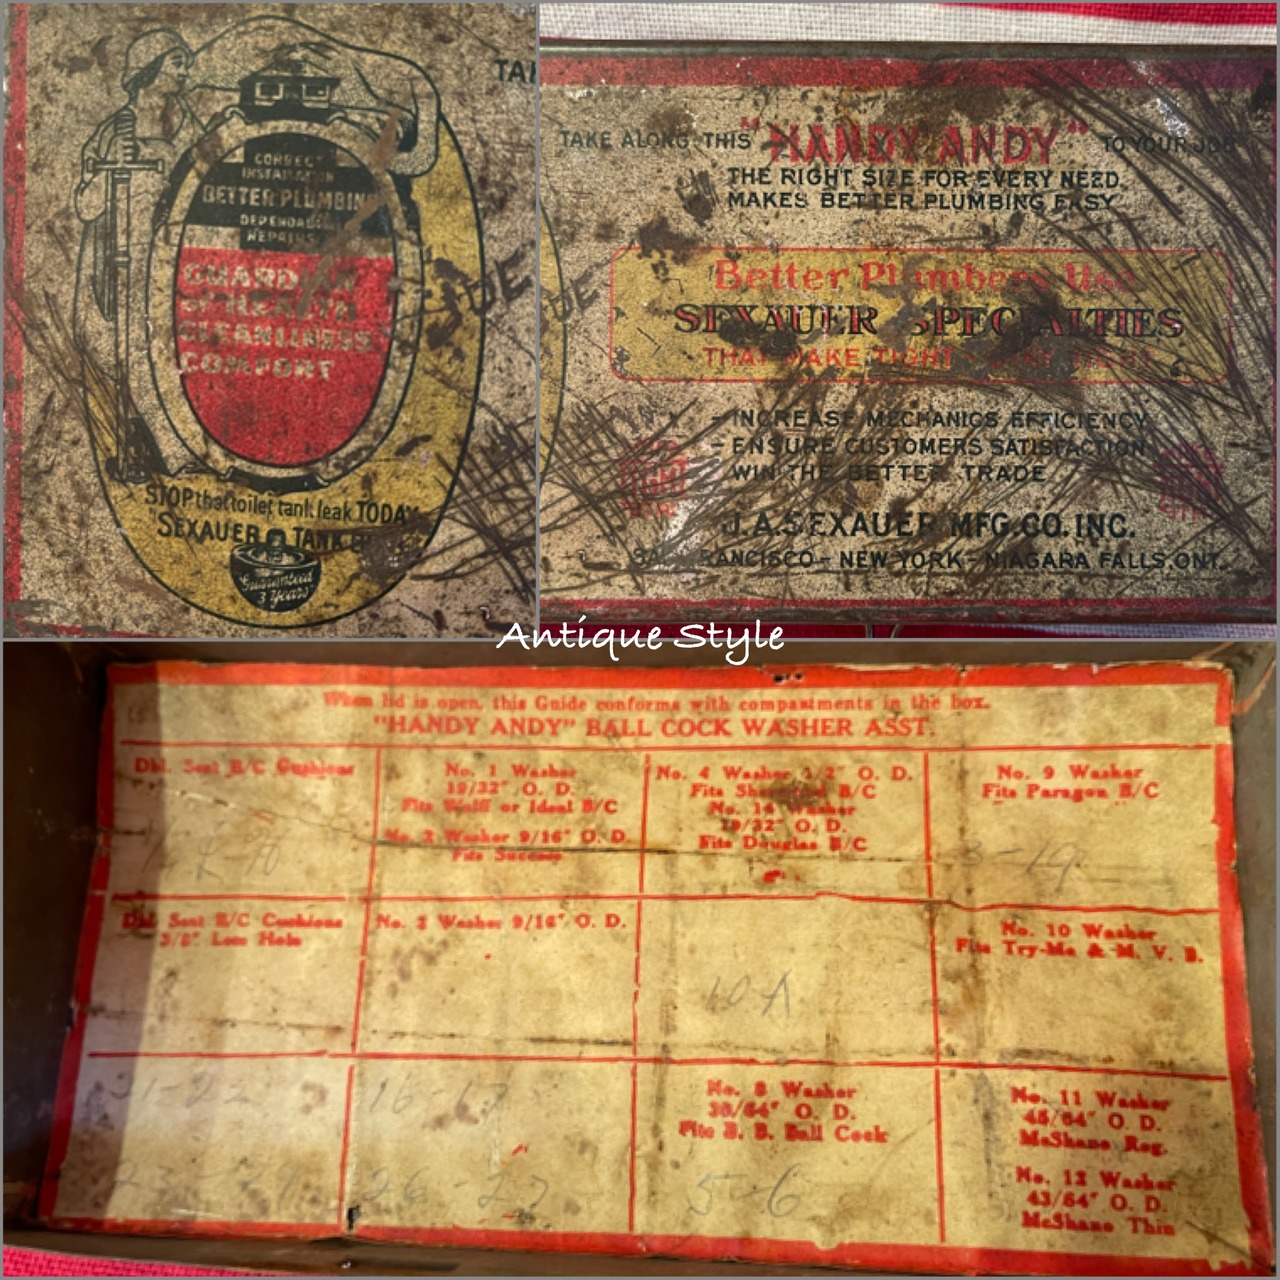 TA
CORRECT
INSTALLATION
BETTER PLUMBING
DEPENDABLE
REPAIRS
GUARD
of Health
CLEANLINESS
COMFORT
STOP that toilet tank leak TODAY
"SEXAUER TANK B
Guaranteed
3 Years
TAKE ALONG THIS "HANDY ANDY" TO YOUR JOB
THE RIGHT SIZE FOR EVERY NEED
MAKES BETTER PLUMBING EASY
Better Plumbers Use
SEXAUER SPECIALTIES
THAT MAKE TIGHT STAY TIGHT
- INCREASE MECHANICS EFFICIENCY
- ENSURE CUSTOMERS SATISFACTION
WIN THE BETTER TRADE
J.A.SEXAUER MFG.CO.INC.
SAN FRANCISCO - NEW YORK - NIAGARA FALLS,ONT.
Antique Style
When lid is open, this Guide conforms with compartments in the box.
"HANDY ANDY" BALL COCK WASHER ASST.
Dbl. Seat B/C Cushions
No. 1 Washer
19/32" O. D.
Fits Wolff or Ideal B/C
No. 2 Washer 9/16" O. D.
Fits Success
No. 4 Washer 1/2" O. D.
Fits B/C
No. 14 Washer
19/32" O. D.
Fits Douglas B/C
No. 9 Washer
Fits Paragon B/C
3-19
Dbl. Seat B/C Cushions
3/8" Less Hole
No. 3 Washer 9/16" O. D.
10-A
No. 10 Washer
Fits Try-Me & M. V. B.
21-22
16-17
26-27
No. 8 Washer
30/64" O. D.
Fits B. B. Ball Cock
5-6
No. 11 Washer
45/64" O. D.
McShane Reg.
No. 12 Washer
43/64" O. D.
McShane Thin